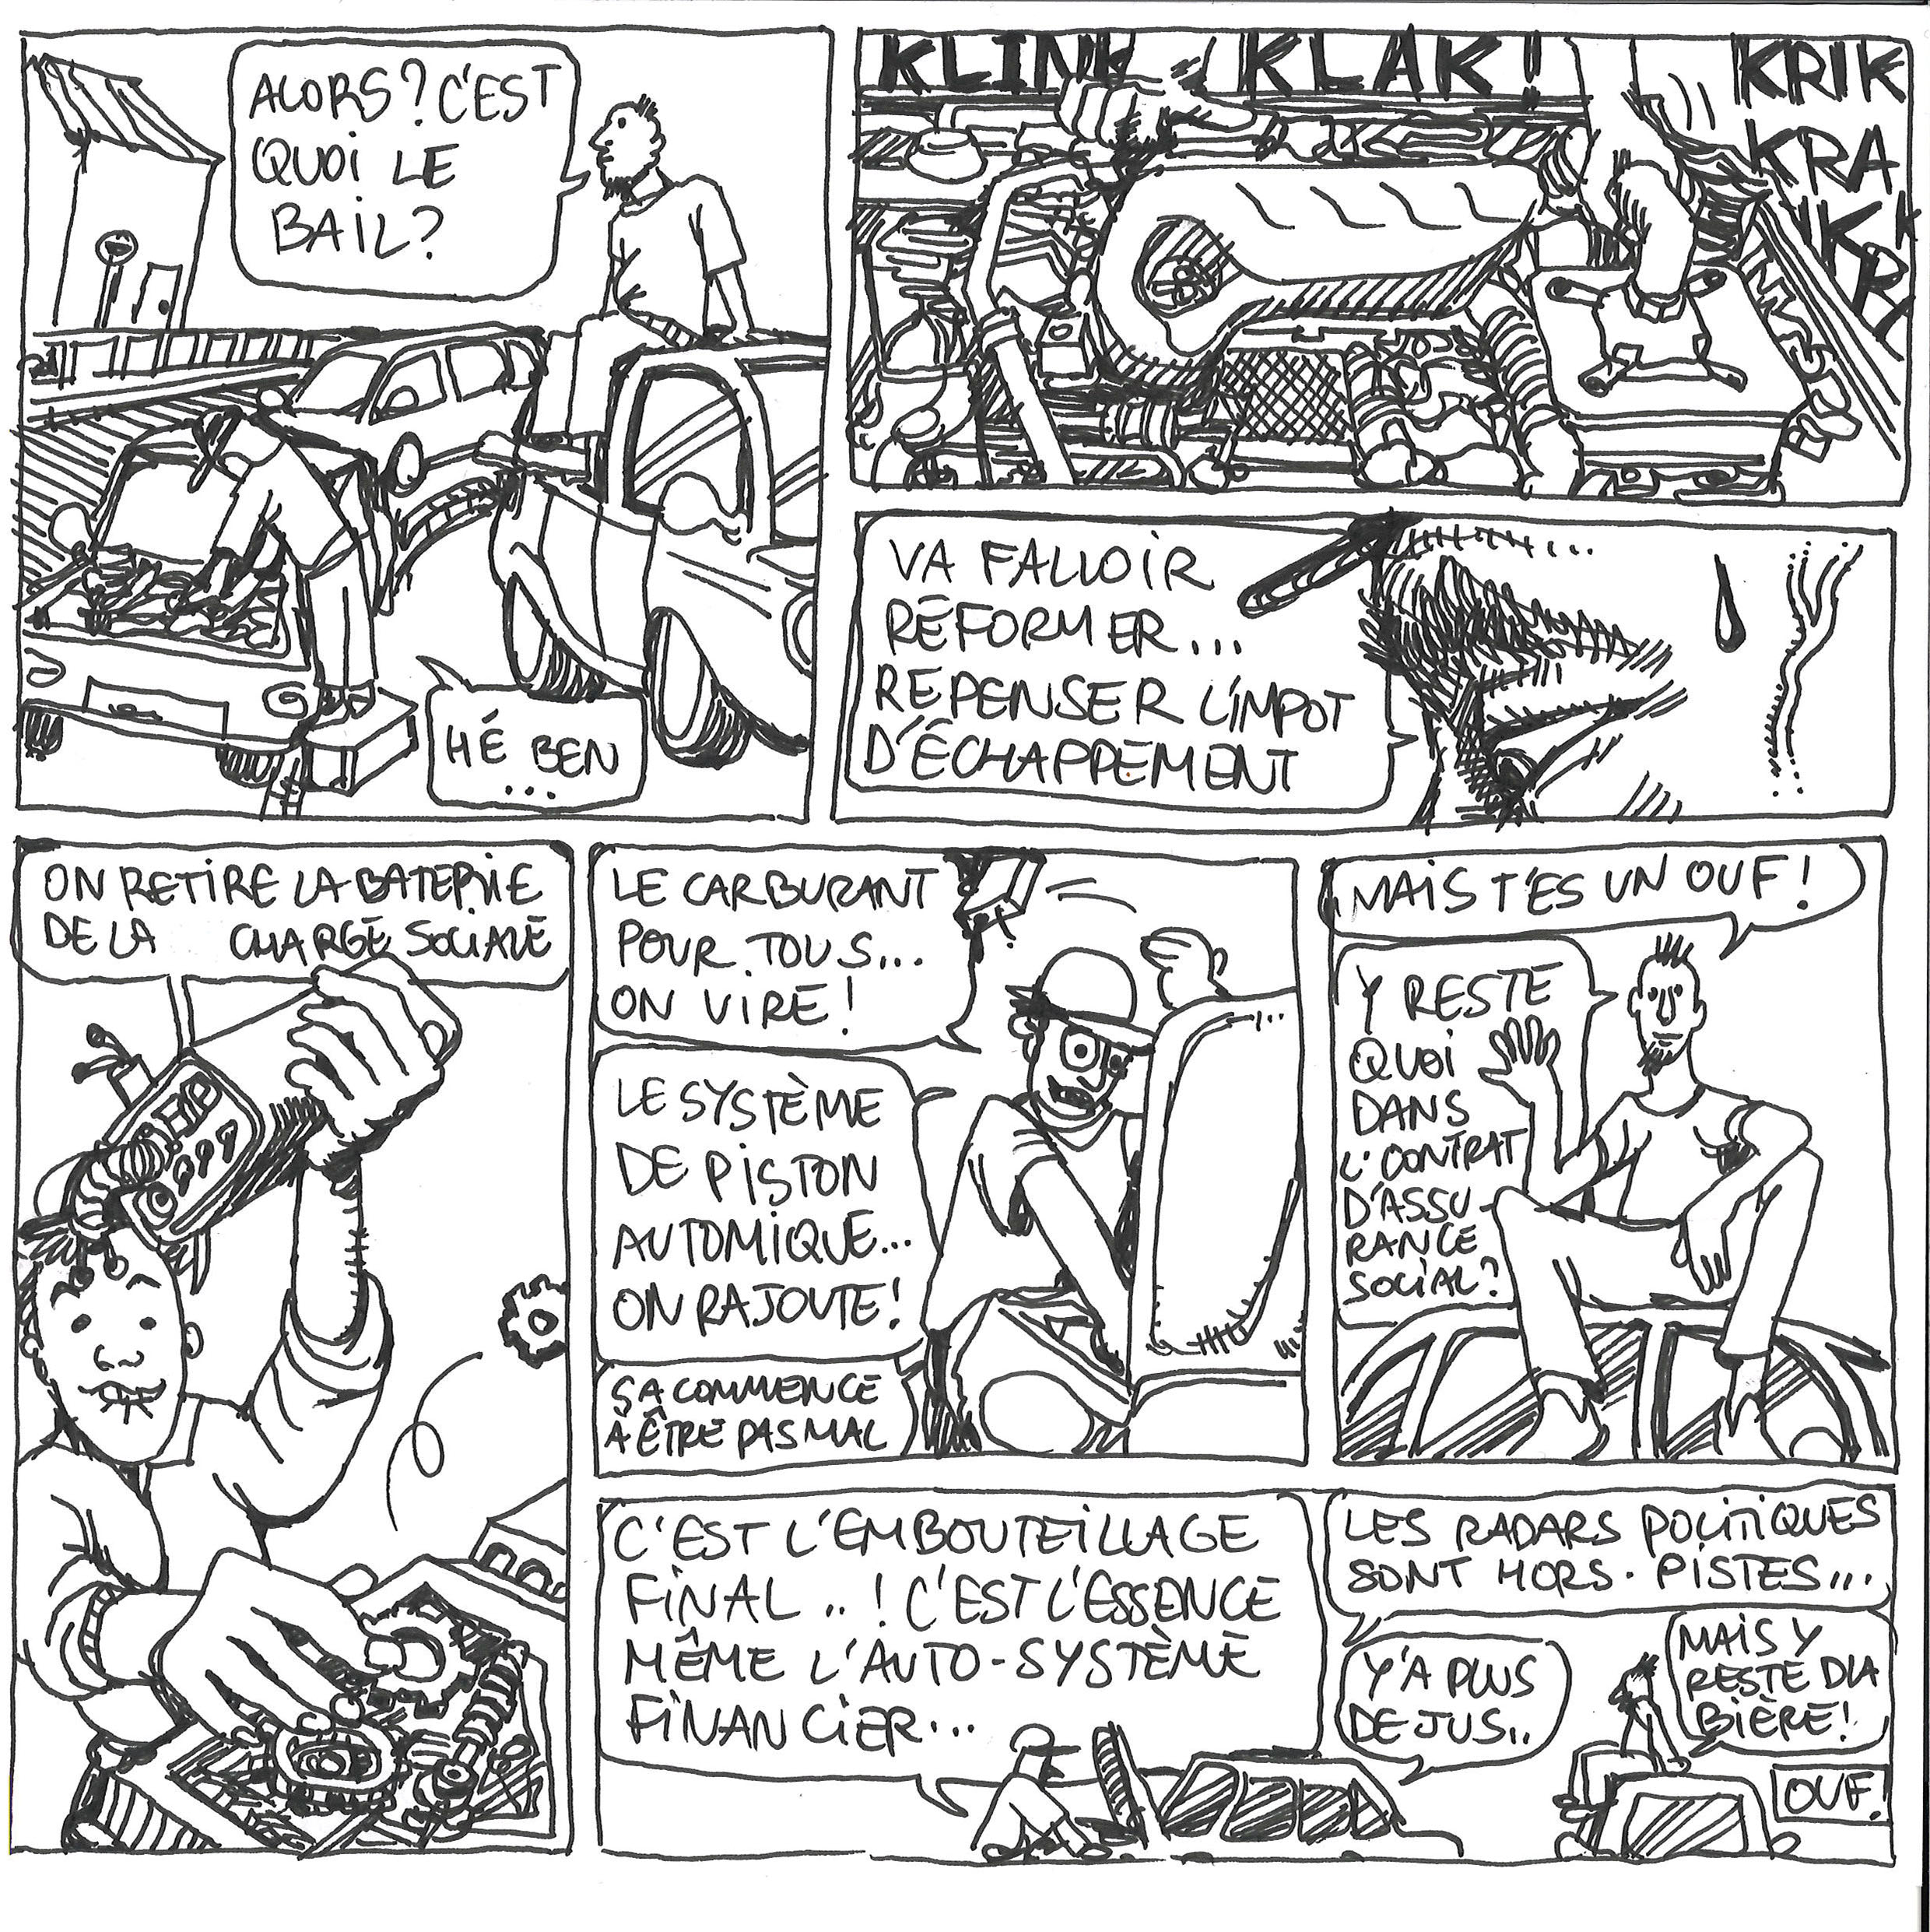 ALORS? C'EST
QUOI LE
BAIL?
HÉ BEN
...
KLINK KLAK!
KRIK
KRA
VA FALLOIR
RÉFORMER...
REPENSER L'IMPOT
D'ÉCHAPPEMENT
ON RETIRE LA BATERIE
DE LA CHARGE SOCIALE
LE CARBURANT
POUR TOUS...
ON VIRE!
LE SYSTÈME
DE PISTON
AUTOMIQUE...
ON RAJOUTE!
ÇA COMMENCE
A ÊTRE PAS MAL
MAIS T'ES UN OUF!
Y RESTE
QUOI
DANS
L'CONTRAT
D'ASSU-
RANCE
SOCIAL?
C'EST L'EMBOUTEILLAGE
FINAL..! C'EST L'ESSENCE
MÊME L'AUTO-SYSTÈME
FINANCIER...
LES RADARS POLITIQUES
SONT HORS-PISTES...
Y'A PLUS
DE JUS..
MAIS Y
RESTE DLA
BIÈRE!
OUF!